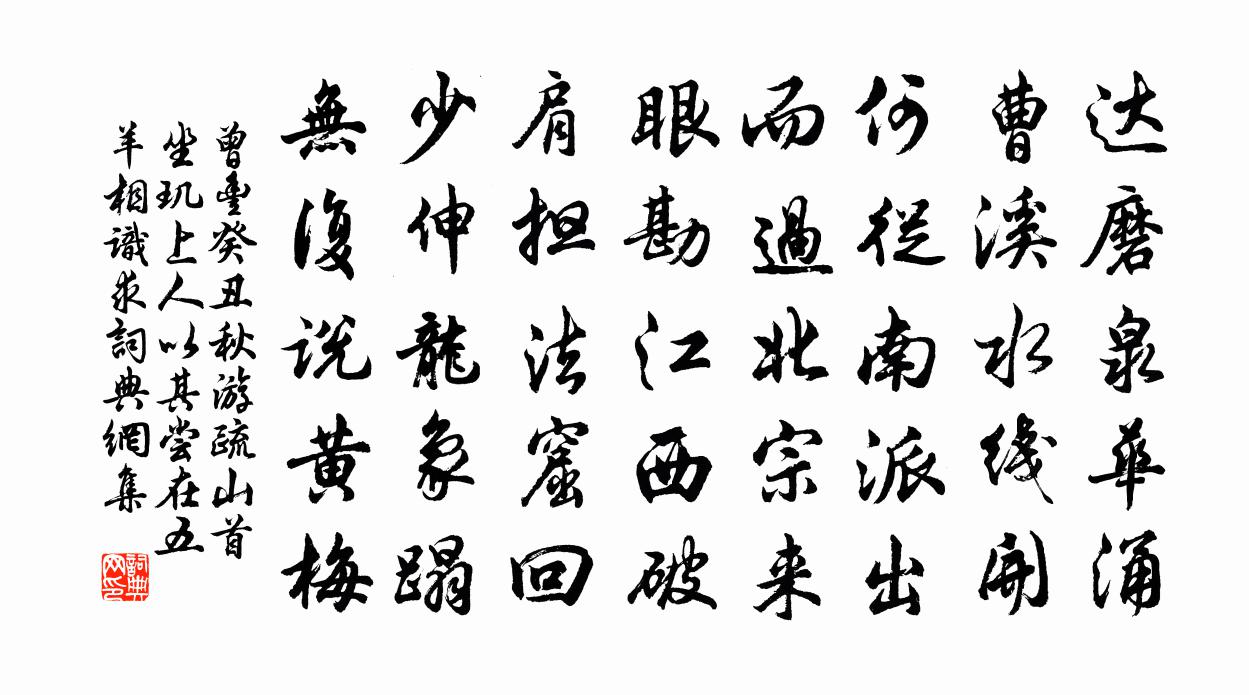 达磨泉華涌
曹溪水线開
何從南派出
而過北宗来
眼勘江西破
肩担法窟回
少伸龍象蹋
無復说黄梅
曾豊癸丑秋游疏山首
坐玑上人以其尝在五
羊相識求詞典網集
詞典
网印